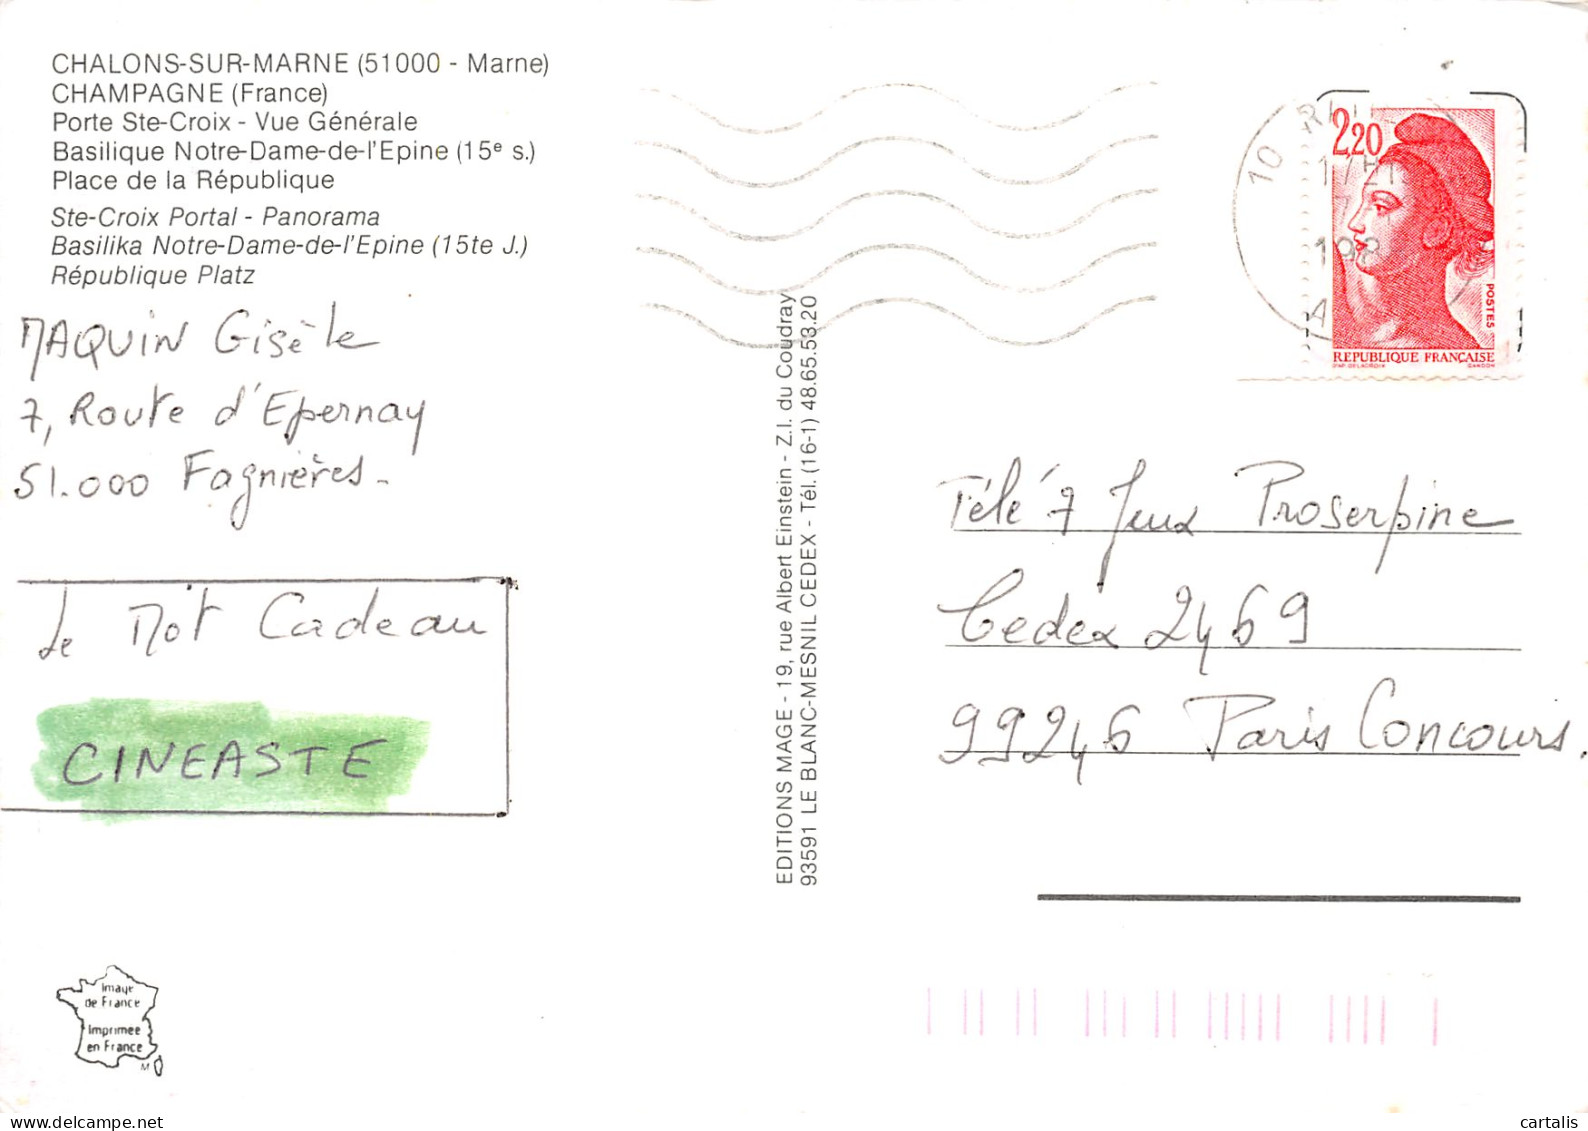 CHALONS-SUR-MARNE (51000 - Marne)
CHAMPAGNE (France)
Porte Ste-Croix - Vue Générale
Basilique Notre-Dame-de-l'Epine (15e s.)
Place de la République
Ste-Croix Portal - Panorama
Basilika Notre-Dame-de-l'Epine (15te J.)
République Platz
MAQUIN Gisèle
7, Route d'Epernay
51.000 Fagnières-
Le Mot Cadeau
CINEASTE
Image
de France
Imprimee
en France
M
EDITIONS MAGE - 19, rue Albert Einstein - Z.I. du Coudray
93591 LE BLANC-MESNIL CEDEX - Tél. (16-1) 48.65.53.20
10
2,20
POSTES
REPUBLIQUE FRANÇAISE
D'AP. DELACROIX GANDON
Télé 7 Jeux Proserpine
Cedex 2469
99246 Paris Concours.
cartalis